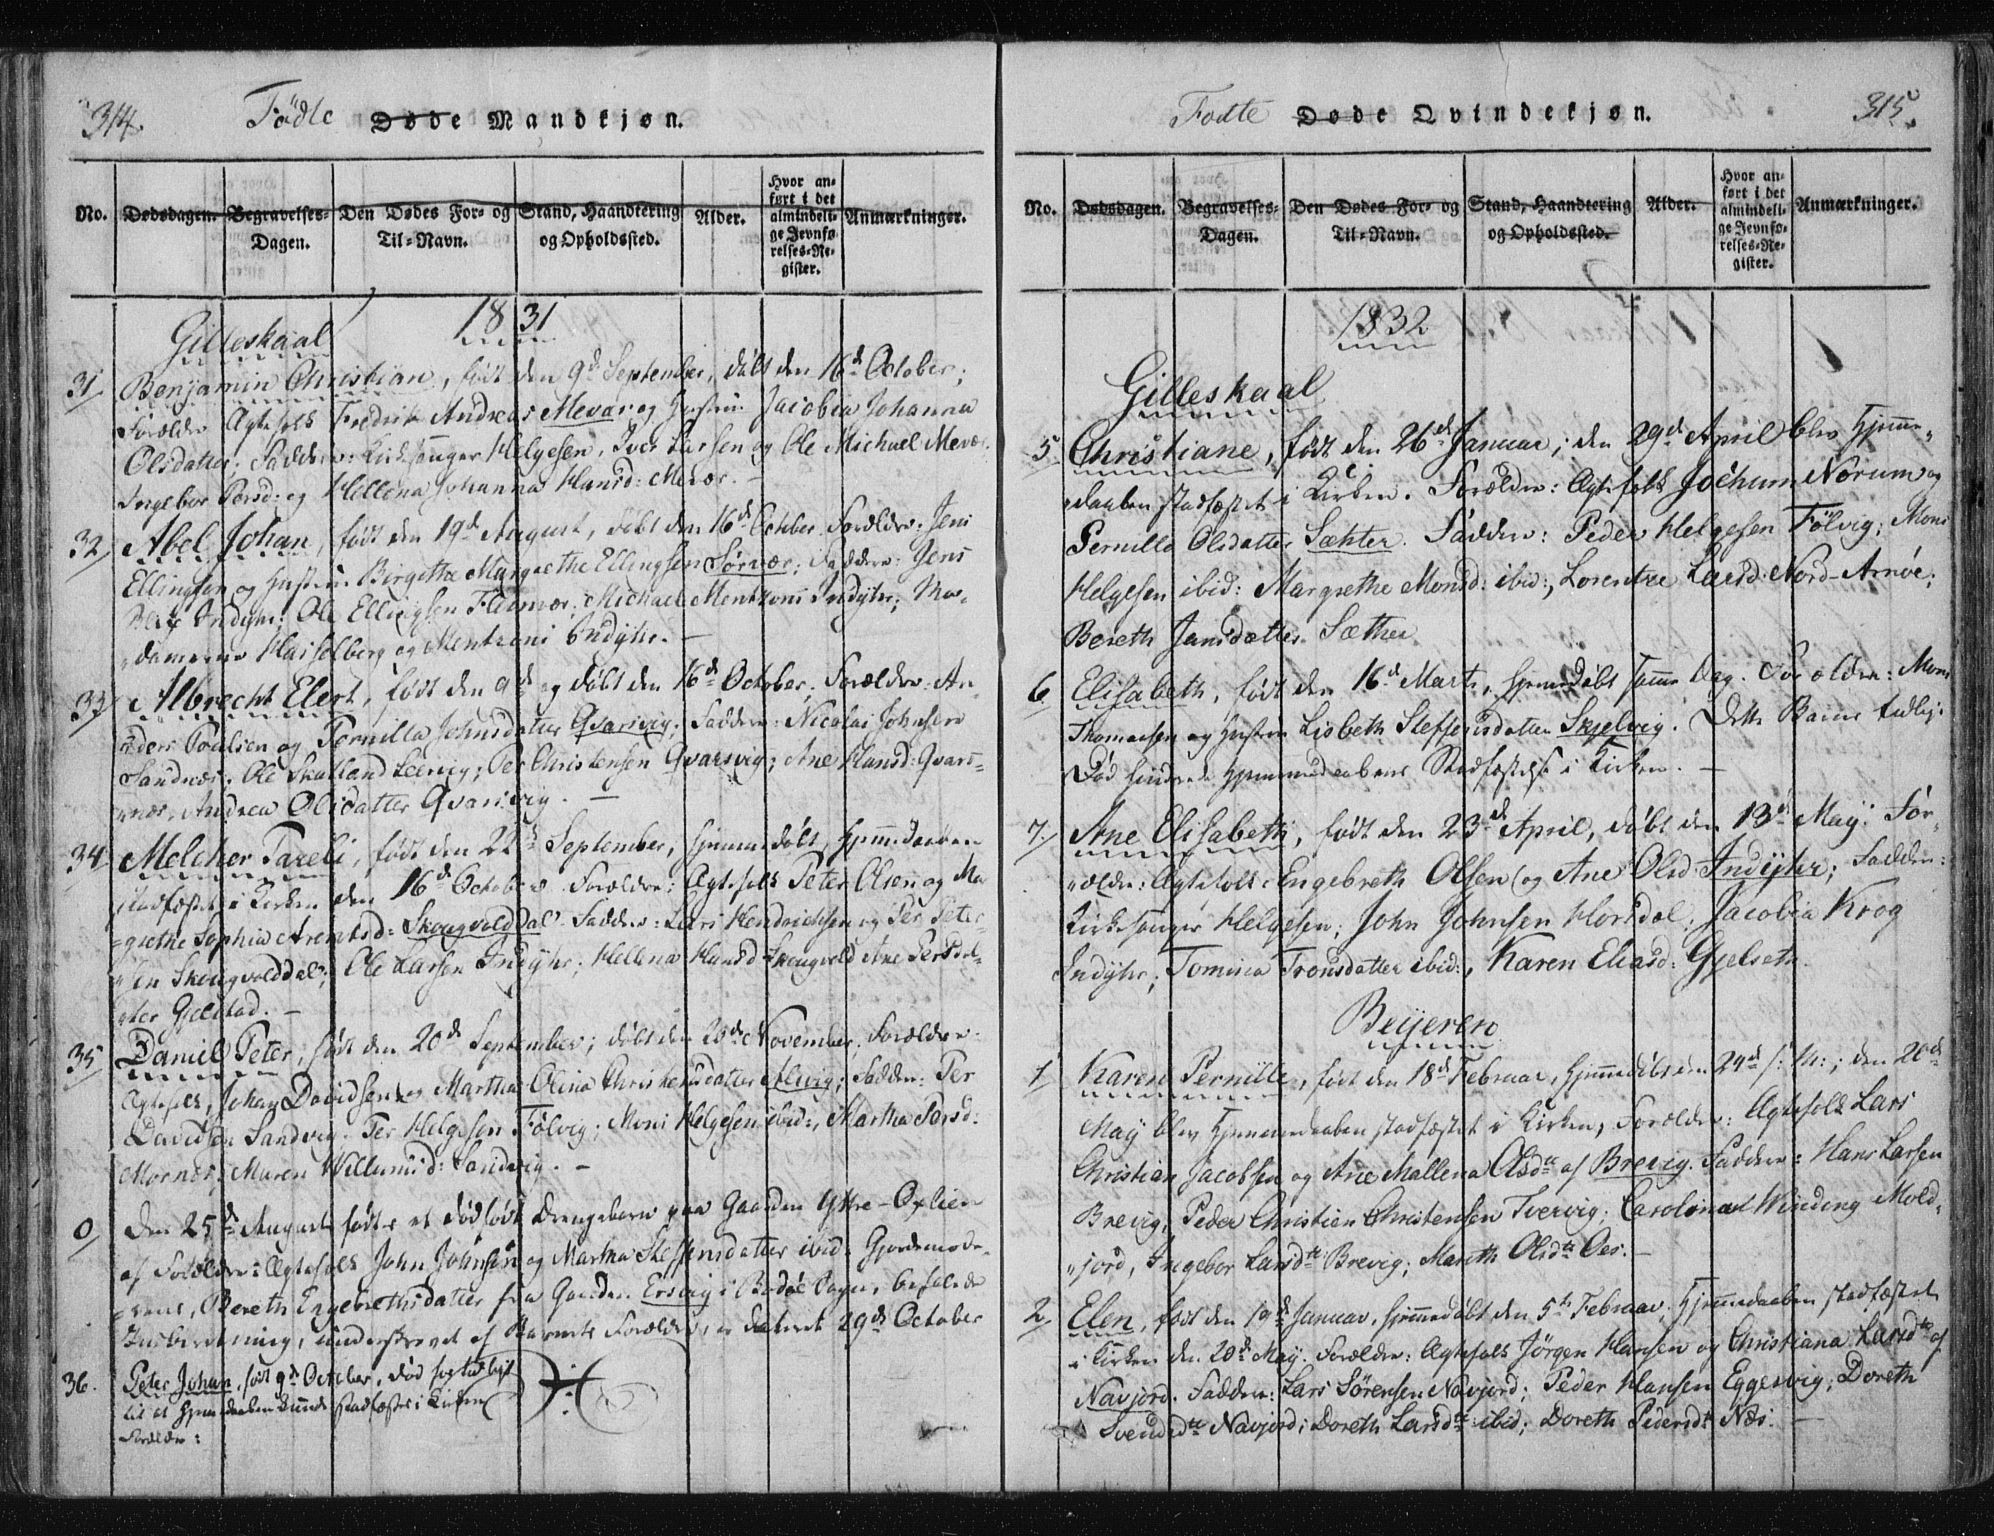 314.
Fødte Døde Mandkjøn.
No. Dødsdagen. Begravelses-Dagen. Den Dødes For- og Til-Navn. Stand, Haandtering og Opholdssted. Alder. Hvor anført i det almindelige Jevnførelses-Register. Anmærkninger.
Gilleskaal 1831
31, Benjamin Christian, født den 9d September, døbt den 16d October;
Forældre Ægtefolk Fredrik Andreas Mevær og Hustrue Jacobia Johanna
Olsdatter. Faddere: Kirkesanger Helgesen, Iver Larsen og Ole Michael Mevær.
Ingebor Persd: og Hellena Johanna Hansd: Mevær. –
32, Abel Johan, født den 19d August, døbt den 16d October. Forældre: Jens
Ellingsen og Hustrue Birgitha Margrethe Ellingsen Sørvær; Faddere: Jens
Indyhr; Ole Ellingsen Fleinvær; Michael Mentzoni Indyhr; Ma-
„damerne Hasselberg og Mentzoni Indyhr. –
33, Albrecht Elert, født den 9d og døbt den 16d October. Forældre: An-
„ders Poulsen og Pernilla Johnsdatter Qvarsvig; Faddere: Nicolai Johnsen
Sandnæs; Ole Skalland Leervig; Per Christensen Qvarsvig; Ane Hansd: Qvars-
„næs, Andrea Olsdatter Qvarsvig. –
34, Melcher Tareli, født den 22d September, hjemmedøbt, Hjemmedaaben
stadfæstet i Kirken den 16d October. Forældre: Ægtefolk Peter Olsen og Ma-
„grethe Sophia Arentsd: Skougvolddal. Faddere: Lars Hendrichsen og Per Peter-
„sen Skougvolddal; Ole Larsen Indyhr; Hellena Hansd Skougvold Ane Persdat-
„ter Gjelstad. –
35, Daniel Peter, født den 20d September; døbt den 20de November. Forældre:
Ægtefolk, Johan Davidsen og Martha Olina Christensdatter Alvig; Faddere: Per
Davidsen Sandvig. Per Helgesen Følvig; Mons Helgesen ibid:, Martha Persd:
Mornes; Maren Willumsd: Sandvig. –
0, Den 25d August fødtes et dødfødt Drengebarn paa Gaarden Yttre-Oxlien
af Forældre: Ægtefolk John Johnsen og Martha Steffensdatter ibid: Gjordemode-
„rens, Bereth Engebrethsdatter fra Gaarden Ersvig i Bodøe befalede
Indberetning, underskrevet af Barnets Forældre, er dateret 29d October
36. Peter Johan, født 9d October, død for tidligt
til at Hjemmedaaben kunde stadfæstes i Kirken
Forældre:
315.
Fødte Døde Qvindekjøn.
No. Dødsdagen. Begravelses-Dagen. Den Dødes For- og Til-Navn. Stand, Haandtering og Opholdssted. Alder. Hvor anført i det almindelige Jevnførelses-Register. Anmærkninger.
1832
Gilleskaal
5, Christiane, født den 26d Januar; den 29d April blev Hjemme-
„daaben stadfæstet i Kirken. Forældre: Ægtefolk Jochum Nörum og
Pernilla Olsdatter Sæhter. Faddere: Peder Helgesen Følvig; Mons
Helgesen ibid: Margrethe Monsd: ibid:, Lorentze Larsd: Nord-Arnøe;
Bereth Jansdatter Sæther
6, Elisabeth, født den 16d Marts, hjemmedøbt samme Dag. Forældre: Mons
Thomassen og Hustrue Lisbeth Steffensdatter Skjelvig. Dette Barns tidlige
Død hindrede Hjemmedaabens Stadfæstelse i Kirken. –
7, Ane Elisabeth, født den 23d April, døbt den 13d May. For-
„ældre: Ægtefolk: Engebreth Olsen og Ane Olsd: Indyhr; Faddere:
Kirkesanger Helgesen; John Johnsen Horsdal; Jacobia Krog
Indyhr; Tomina Tronsdatter ibid:, Karen Eliasd: Gjelseth.
Beijeren
1, Karen Pernille, født den 18d Februar, hjemmedøbt den 24d s: M:; den 20d
May blev Hjemmedaaben stadfæstet i Kirken, Forældre: Ægtefolk Lars
Christian Jacobsen og Ane Mallena Olsdtr af Brevig. Faddere: Hans Larsen
Brevig, Peder Christian Christensen Tvervig; Carolina Winding Mold-
„jord, Ingebor Larsdtr Brevig; Mareth Olsdtr Oes. –
2, Elen, født den 19d Januar, hjemmedøbt den 5te Februar, Hjemmedaaben stadfæstet
i Kirken den 20d May. Forældre: Ægtefolk Jörgen Hansen og Christiana Larsdtr af
Navjord. Faddere: Lars Sörensen Navjord; Peder Hansen Eggesvig; Doreth
Svendsdtr Navjord; Doreth Larsdtr ibid; Doreth Pedersdtr Næs. –